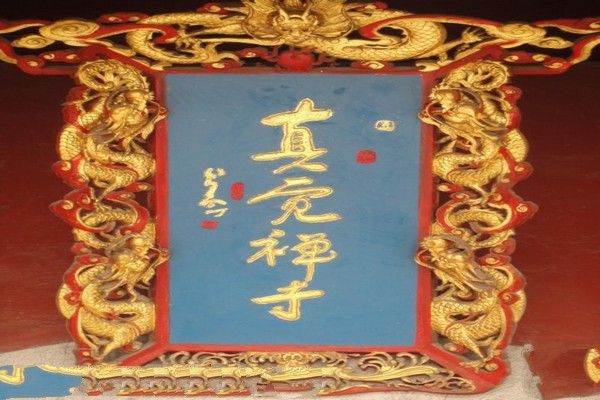 真觉禅寺